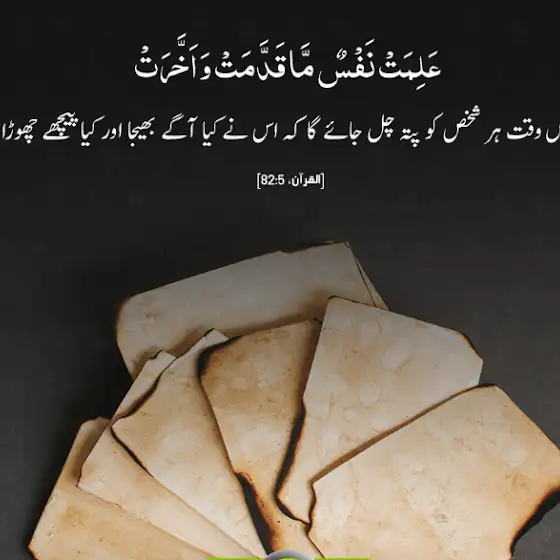 عَلِمَتْ نَفْسٌ مَّا قَدَّمَتْ وَاَخَّرَتْ
وقت ہر شخص کو پتہ چل جائے گا کہ اس نے کیا آگے بھیجا اور کیا پیچھے چھوڑا
[القرآن، 82:5]